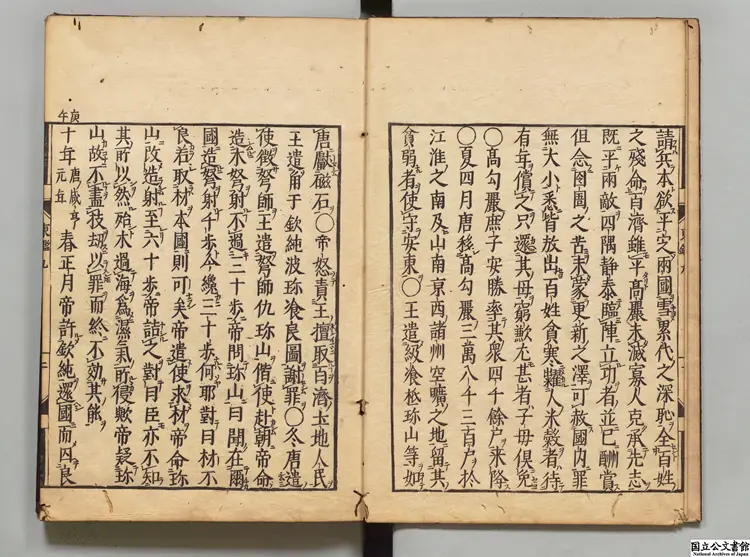 請兵本欲平定兩國雪累代之深恥全百姓
之殘命百濟雖平髙嚴未滅寡人克承先志
既平兩敵四隅静泰臨陣立功者並已酬賞
但念囹圄之苦未蒙更新之澤可赦國内罪
無大小悉皆放出百姓貪寒糶人米穀者待
有年償之只還其母窮歉尤甚者子母倶免
〇髙勾嚴庶子安勝率其衆四千餘户来降
〇夏四月唐移髙勾嚴三萬八千三百户扵
江淮之南及山南京西諸州空曠之地留其
貪弱者使守安東〇王遣級飡祗珎山等如
唐獻磁石〇帝怒責王擅取百濟土地人民
王遣角干欽純波珎飡良圖謝罪〇冬唐遣
使徴弩師王遣弩師仇珎山偕使赴朝帝命
造木弩射不過三十歩帝問珎山曰聞在爾
國造弩射千歩今纔三十歩何耶對曰材不
良若取材本國則可矣帝遣使求材帝命珎
山改造射至六十歩帝詰之對曰臣亦不知
其所以然殆木過海為濕氣所侵歟帝疑珎
山故不盡技劫以罪而終不効其能
庚午
十年 唐咸亨元年 春正月帝許欽純還國而囚良
東鑑九
国立公文書館
National Archives of Japan